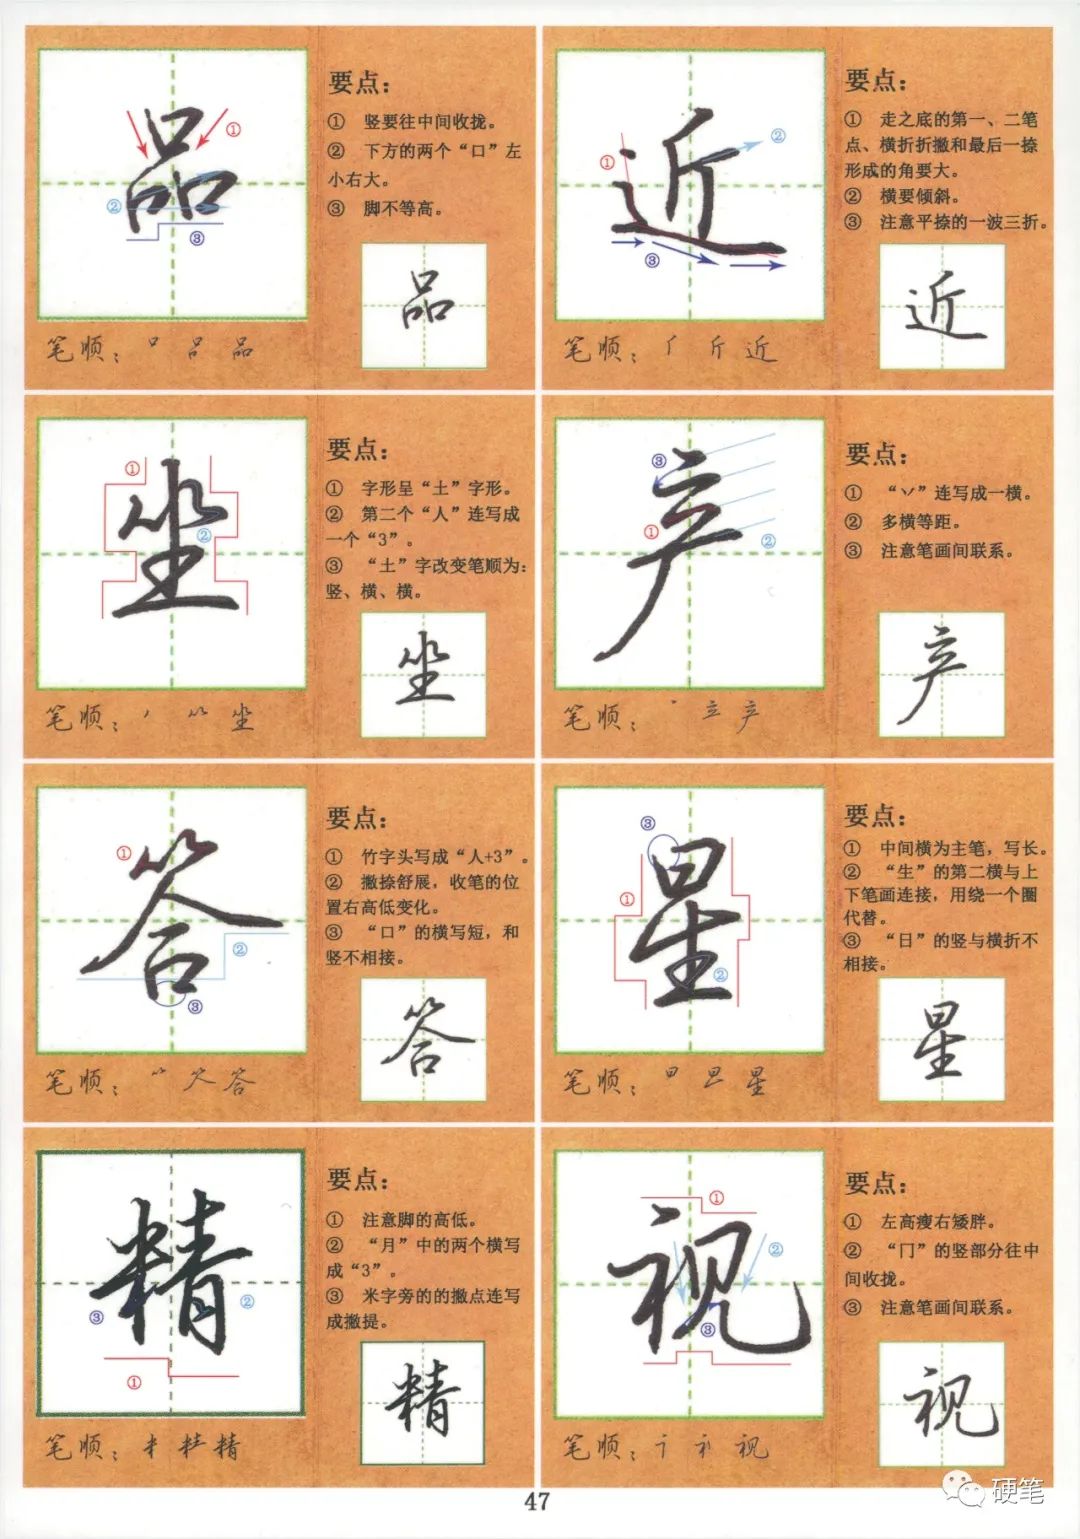 品
要点：
① 竖要往中间收拢。
② 下方的两个“口”左
小右大。
③ 脚不等高。
①
②
③
品
笔顺：口 吕 品
近
要点：
① 走之底的第一、二笔
点、横折折撇和最后一捺
形成的角要大。
② 横要倾斜。
③ 注意平捺的一波三折。
①
②
③
近
笔顺：厂 斤 近
坐
要点：
① 字形呈“土”字形。
② 第二个“人”连写成
一个“3”。
③ “土”字改变笔顺为：
竖、横、横。
①
②
坐
笔顺：丿 坐
产
要点：
① “丷”连写成一横。
② 多横等距。
③ 注意笔画间联系。
③
①
②
产
笔顺：丶 立 产
答
要点：
① 竹字头写成“人+3”。
② 撇捺舒展，收笔的位
置右高低变化。
③ “口”的横写短，和
竖不相接。
①
②
③
答
笔顺：答
星
要点：
① 中间横为主笔，写长。
② “生”的第二横与上
下笔画连接，用绕一个圈
代替。
③ “日”的竖与横折不
相接。
③
①
②
星
笔顺：日 旦 星
精
要点：
① 注意脚的高低。
② “月”中的两个横写
成“3”。
③ 米字旁的的撇点连写
成撇提。
③
②
①
精
笔顺：精
视
要点：
① 左高瘦右矮胖。
② “冂”的竖部分往中
间收拢。
③ 注意笔画间联系。
①
②
③
视
笔顺：礻 视
47
硬笔